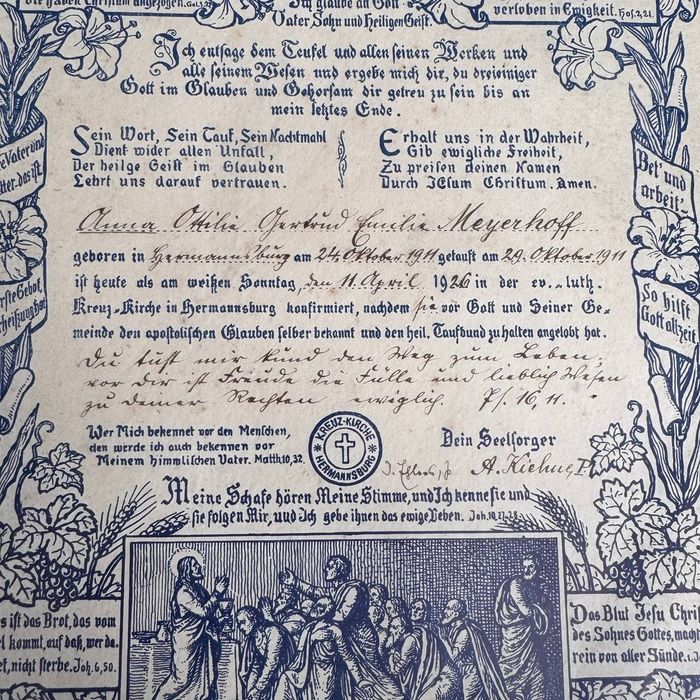 die haben Christum angezogen. Gal. 3,27.
Ich glaube an Gott
Vater Sohn und Heiligen Geist.
verloben in Ewigkeit. Hos. 2,21.
Ich entsage dem Teufel und allen seinen Werken und
alle seinem Wesen und ergebe mich dir, du dreieiniger
Gott im Glauben und Gehorsam dir getreu zu sein bis an
mein letztes Ende.
Sein Wort, Sein Tauf, Sein Nachtmahl
Dient wider allen Unfall,
Der heilge Geist im Glauben
Lehrt uns darauf vertrauen.
Erhalt uns in der Wahrheit,
Gib ewigliche Freiheit,
Zu preisen deinen Namen
Durch JEsum Christum. Amen.
Vater und
ist.
Bet' und
arbeit',
So hilft
Gott allzeit
erste Gebot,
Anna Ottilie Gertrud Emilie Meyerhoff
geboren in Hermannsburg am 24. Oktober 1911 getauft am 29. Oktober 1911
ist heute als am weißen Sonntag, den 11. April 1926 in der ev.=luth.
Kreuz=Kirche in Hermannsburg konfirmiert, nachdem sie vor Gott und Seiner Ge=
meinde den apostolischen Glauben selber bekannt und den heil. Taufbund zu halten angelobt hat.
Du tust mir kund den Weg zum Leben;
vor Dir ist Freude die Fülle und lieblich Wesen
zu deiner Rechten ewiglich. Ps. 16, 11.
Wer Mich bekennet vor den Menschen,
den werde ich auch bekennen vor
Meinem himmlischen Vater. Matth. 10, 32.
KREUZ-KIRCHE
HERMANNSBURG
Dein Seelsorger
A. Kiehne, P.
Meine Schafe hören Meine Stimme, und Ich kenne sie und
sie folgen Mir, und Ich gebe ihnen das ewige Leben. Joh. 10,27.28.
ist das Brot, das vom
kommt, auf daß, wer da
nicht sterbe. Joh. 6, 50.
Das Blut Jesu Chri
des Sohnes Gottes, macht
rein von aller Sünde.